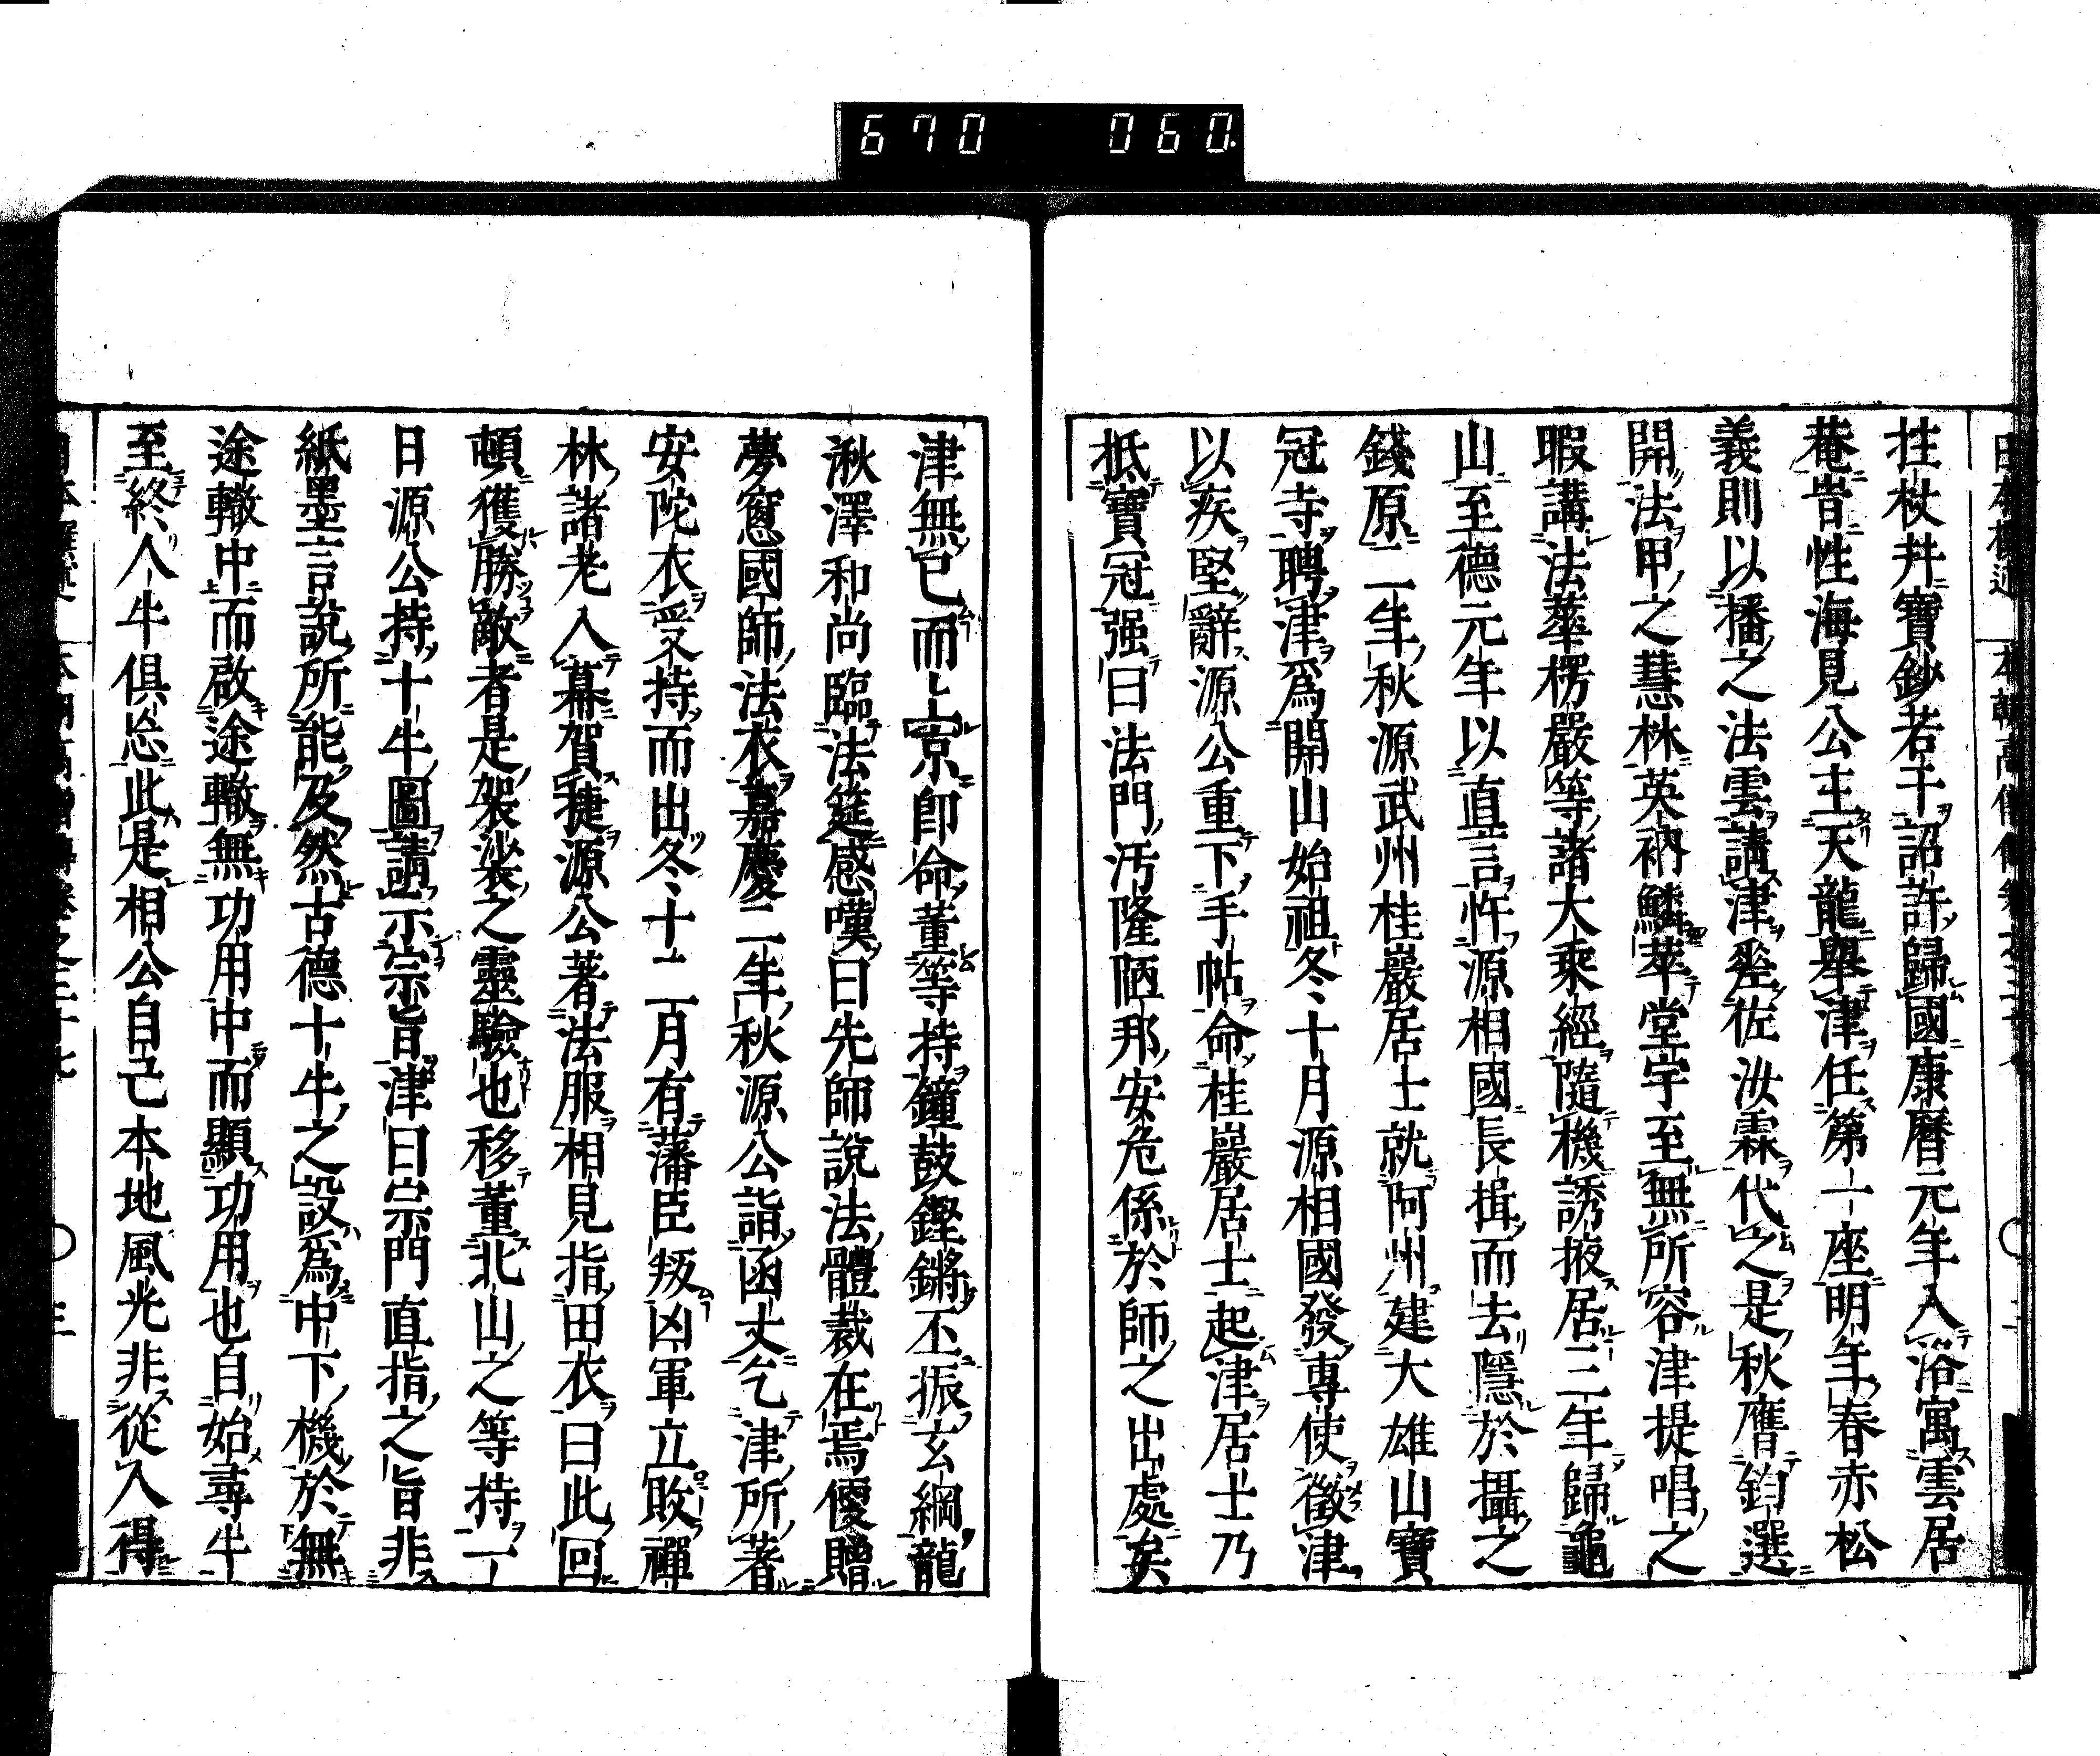 670 060
拄杖并寶鈔若干詔許歸國康曆元年入浴寓雲居
菴旹性海見公主天龍舉津任第一座明年春赤松
義則以播之法雲請津差佐汝霖代之是秋膺鈞選
開法甲之慧林英衲鱗萃堂宇至無所容津提唱之
暇講法華楞嚴等諸大乘經隨機誘掖居三年歸龜
山至德元年以直言忤源相國長揖而去隱於攝之
錢原二年秋源武州桂巖居士就阿州建大雄山寶
冠寺聘津爲開山始祖冬十月源相國發專使徵津
以疾堅辭源公重下手帖命桂巖居士起津居士乃
抵寶冠强曰法門汚隆陋邦安危係於師之出處矣
津無已而上京即命董等持鐘鼓鏗鏘丕振玄綱龍
湫澤和尚臨法筵感嘆曰先師說法體裁在焉便贈
夢窻國師法衣嘉慶二年秋源公詣函丈乞津所著
安陀衣受持而出冬十二月有藩臣叛凶軍立敗禪
林諸老入幕賀捷源公著法服相見指田衣曰此回
頓獲勝敵者是袈裟之靈驗也移董北山之等持一
日源公持十牛圖請示宗旨津曰宗門直指之旨非
紙墨言說所能及然古德十牛之設爲中下機於無
途轍中而啟途轍無功用中而顯功用也自始尋牛
至終人牛俱忘此是相公自己本地風光非從人得